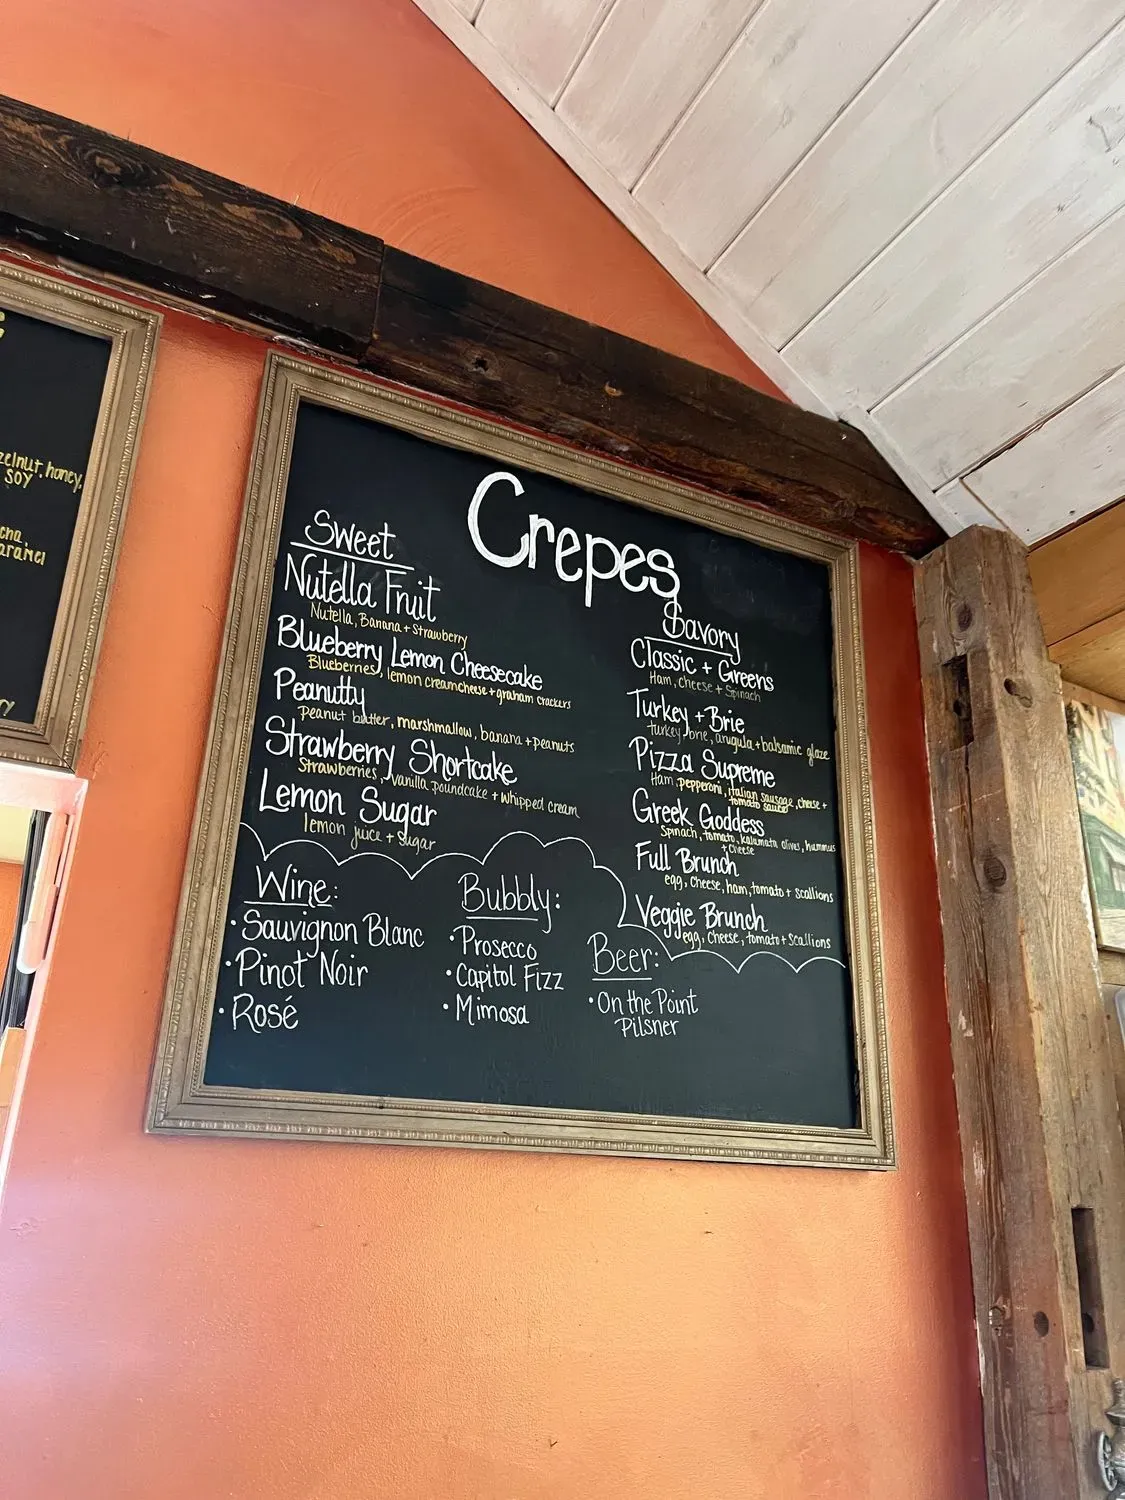 zelnut, honey,
SOY
cha
aramel
Crepes
Sweet
Nutella Fruit
Nutella, Banana + Strawberry
Blueberry Lemon Cheesecake
Blueberries, lemon creamcheese + graham crackers
Peanutty
Peanut butter, marshmallow, banana + peanuts
Strawberry Shortcake
Strawberries, Vanilla poundcake + Whipped cream
Lemon Sugar
lemon juice + Sugar
Savory
Classic + Greens
Ham, cheese + Spinach
Turkey + Brie
turkey, brie, arugula + balsamic glaze
Pizza Supreme
Ham, pepperoni, italian sausage, cheese +
tomato sauce
Greek Goddess
Spinach, tomato, kalamata olives, hummus
+ cheese
Full Brunch
egg, cheese, ham, tomato + scallions
Veggie Brunch
egg, cheese, tomato + scallions
Wine:
• Sauvignon Blanc
• Pinot Noir
• Rosé
Bubbly:
• Prosecco
• Capitol Fizz
• Mimosa
Beer:
• On the Point
Pilsner